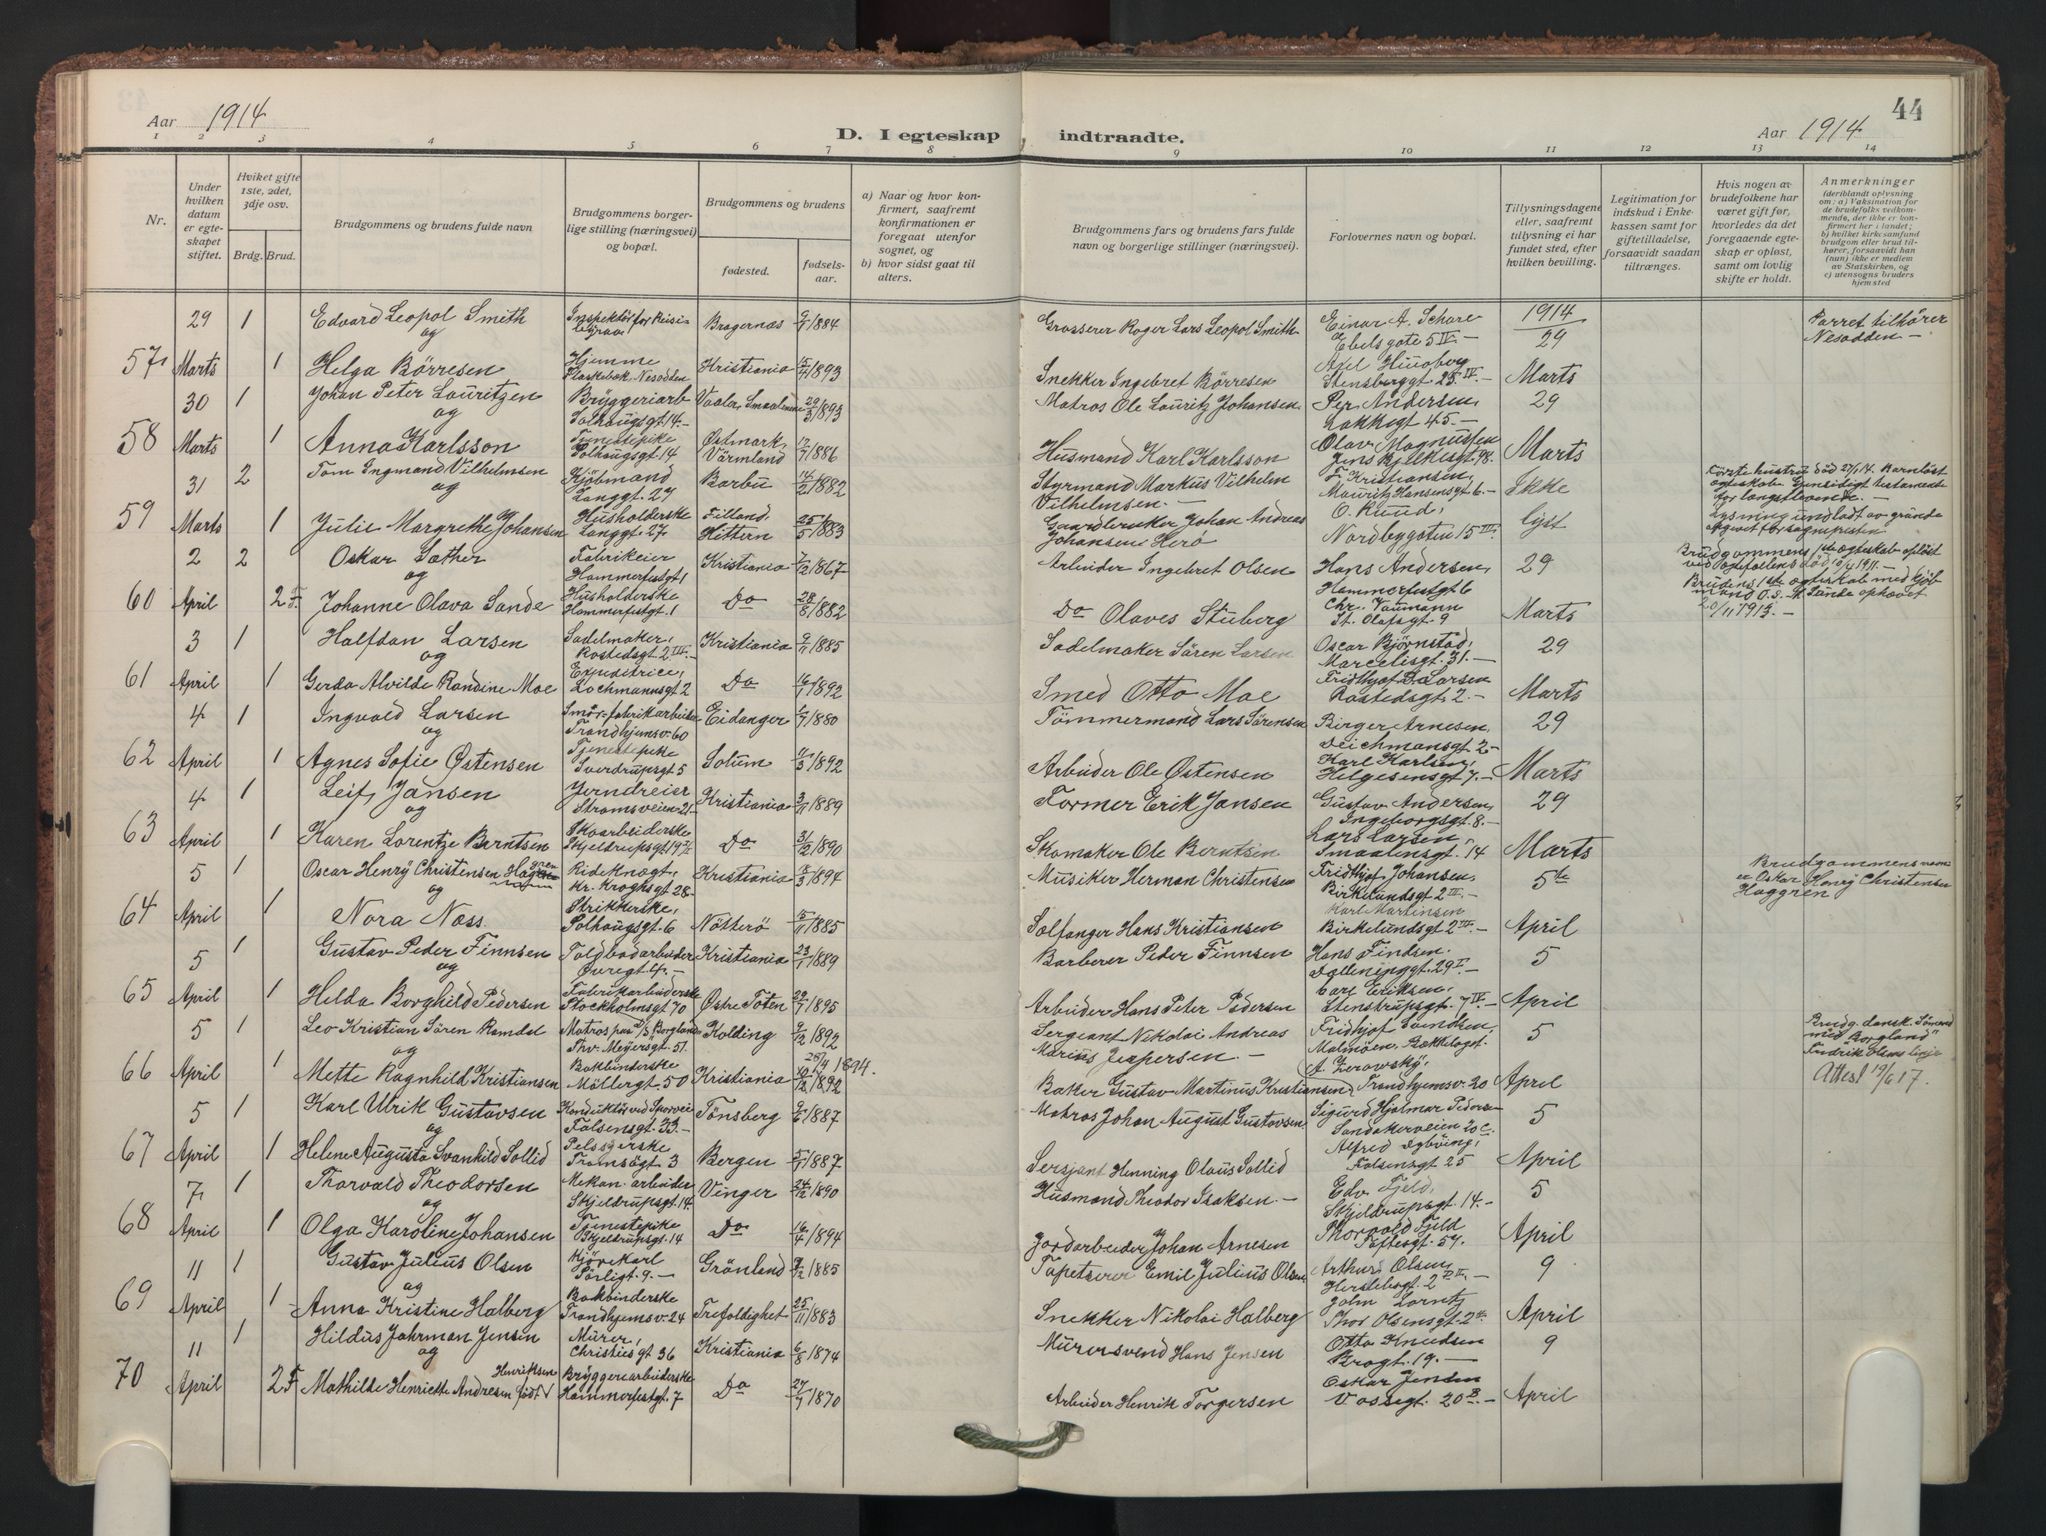 Aar 1914
D. I egteskap indtraadte.
Aar 1914
44
1 2 3 4 5 6 7 8 9 10 11 12 13 14
Nr.
Under hvilken datum er egteskapet stiftet.
Hvilket gifte 1ste, 2det, 3dje osv.
Brdg. Brud.
Brudgommens og brudens fulde navn
Brudgommens borgerlige stilling (næringsvei) og bopæl.
Brudgommens og brudens
fødested.
fødselsaar.
a) Naar og hvor konfirmert, saafremt konfirmationen er foregaat utenfor sognet, og
b) hvor sidst gaat til alters.
Brudgommens fars og brudens fars fulde navn og borgerlige stillinger (næringsvei).
Forlovernes navn og bopæl.
Tillysningsdagene eller, saafremt tillysning ei har fundet sted, efter hvilken bevilling.
Legitimation for indskud i Enkekassen samt for giftetilladelse, forsaavidt saadan tiltrænges.
Hvis nogen av brudefolkene har været gift før, hvorledes da det foregaaende egteskap er opløst, samt om lovlig skifte er holdt.
Anmerkninger
(deriblandt oplysning om: a) Vaksination for de brudefolks vedkommende, der ikke er konfirmert her i landet; b) hvilket kirkesamfund brudgom eller brud tilhører, forsaavidt han (hun) ikke er medlem av Statskirken, og c) utensogns bruders hjemsted
57 29 Marts 1 Edvard Leopol Smith Bragernæs 9/7 1884 Grosserer Roger Lars Leopol Smith Einar A. Schare Ebelsgate 5 IV. 1914 29 Parret tilhører Nesodden
og
1 Helga Börresen Hjemme Flaskebæk Nesodden Kristiania 15/4 1893 Snekker Ingebret Börresen Axel Stensberggt 25 IV. Marts
58 30 Marts 1 Johan Peter Lauritzen Bryggeriarb Solhaugsgt 14. Vaaler, Smaalenene 29/3 1893 Matros Ole Lauritz Johansen, Per Andersen, Lakkegt 45. 29
og
1 Anna Karlsson Tjenestepike Solhaugsgt 14 Østmark, Värmland 17/7 1886 Husmand Karl Karlsson Olav Magnussen Jens Bjelkesgt. 48. Marts
59 31 Marts 2 Tom Ingmand Vilhelmsen Kjöbmand Langgt. 27 Barbu 14/2 1882 Styrmand Markus Vilhelm Vilhelmsen F Kristiansen, Mauritz Hansensgt 6. Ikke Förste hustru död 27/1 14. Barnlöst egteskab. Gjensidigt testamente for længstlevende.
og
1 Julie Margrethe Johansen Husholderske Langgt. 27 Filland, Hittern 25/5 1883 Gaardbruker Johan Andreas Johansen Herö O. Ruud, Nordbygaten 15 III lyst Lysning undladt av grunde opgivet for sognepresten
60 2 April 2 Oskar Sæther Fabrikeier Hammerfestgt 1 Kristiania 7/12 1867 Arbeider Ingebret Olsen Hans Andersen, Hammerfestgt 6 29 Brudgommens 1ste egteskab oplöst ved egtefællens död 10/4 1911.
og
2 F. Johanne Olava Sande Husholderske Hammerfestgt. 1 Do 28/8 1882 Do Olaves Stuberg Chr. Taumann St. Olafsgt. 9 Marts Brudens 1ste egteskab med kjöbmand O.S. Sande ophævet 20/11 1913.
61 3 April 1 Halfdan Larsen Sadelmaker, Rostedsgt. 2 III. Kristiania 9/11 1885 Sadelmaker Sören Larsen Oscar Bjørnstad, Marcelisgt. 31. 29
og
1 Gerda Alvilde Randine Moe Expeditrice, Lochmannsgt 2 Do 16/1 1892 Smed Otto Moe Fridthjof D. Larsen Rostedsgt. 2. Marts
62 4 April 1 Ingvald Larsen Smör-fabrikarbeider Trondhjemsv. 60 Eidanger 1/7 1880 Tömmermand Lars Sörensen Birger Arnesen, Deichmansgt. 2 29
og
1 Agnes Sofie Østensen Tjenestepike Sverdrupsgt 5 Solum 7/3 1892 Arbeider Ole Østensen Karl Karlsen, Helgesensgt 7. Marts
63 4 April 1 Leif Jansen Jerndreier Strömsveien 21 Kristiania 3/11 1889 Former Erik Jansen Gustav Andersen, Ingeborgsgt. 8. 29
og
1 Karen Lorentze Berntsen Skoarbeiderske Skjeldrupsgt 19 IV Do 31/12 1890 Skomaker Ole Berntsen Lars Larsen, Smaalensgt. 14 Marts
64 5 April 1 Oscar Henry Christensen Rideknægt, Kr. Kroghsgt 28 Kristiania 18/3 1894 Musiker Herman Christensen Fridthjof Johansen, Birkelundsgt 2 III. 5te Brudgommens navn er Oskar Henry Christensen Haggren
og
1 Nora Næss. Strikkerske, Solhaugsgt. 6 Nötterö 15/11 1885 Sælfanger Hans Kristiansen Karl Martinsen Birkelundsgt 2 III. April
65 5 April 1 Gustav Peder Finnsen Toldbodarbeider Øvregt 4. Kristiania 23/1 1889 Barberer Peder Finnsen Hans Findsen. Dælenenggt. 29 I. 5
og
1 Helda Borghild Pedersen Fabrikarbeiderske Stockholmsgt 70 Østre Toten 29/7 1895 Arbeider Hans Peter Pedersen Carl Eriksen, Stenstrupsgt. 7 IV. April
66 5 April 1 Leo Kristian Sören Ramdal Matros paa D/S Borgland Thv. Meyersgt. 51. Kolding 9/12 1892 Sergeant Nikolai Andreas Marius Jespersen. Fridthjof Svendsen, Malmöen, 5 Brudg. dansk. Sömand med "Borgland" Fredrik Olsens linje
og
26/4 1894.
1 Mette Ragnhild Kristiansen Bokbinderske Möllergt. 50 Kristiania 10/12 1892 Baker Gustav Martinus Kristiansen Trondhjemsv. 20 April Attest 19/6 17.
67 5 April 1 Karl Ulrik Gustavsen Konduktör ved Sporvei Falsensgt. 33. Tönsberg 9/6 1887 Matros Johan August Gustavsen Sigurd Hjalmar Pedersen Sandakerveien 20 c. 5
og
1 Helene Augusta Svanhild Sollid Pelssyerske Tromsögt. 3 Bergen 5/7 1887 Sersjant Henning Olaus Sollid Alfred Dybving, Falsensgt 25 April
68 7 April 1 Thorvald Theodorsen Mekan. arbeider Skjeldrupsgt. 14. Vinger 24/12 1890 Husmand Theodor Isaksen. Edv. Fjeld, Skjeldrupsgt 14. 5
og
1 Olga Karoline Johansen Tjenestepike Skjeldrupsgt. 14 Do 16/4 1894 Jordarbeider Johan Arnesen Thorvald Fjeld Toftesgt. 57. April
69 11 April 1 Gustav Julius Olsen Kjörekarl Sörligt. 9. Grönland 9/12 1885 Tapetserer Emil Julius Olsen Arthur Olsen, Herslebsgt. 2 9
og
1 Anna Kristine Halberg Bokbinderske Trondhjemsv. 24 Trefoldighet 25/11 1883 Snekker Nikolai Halberg John Lorntz Thor Olsensgt. 2 April
70 11 April 1 Hildus Johrman Jensen Murer, Christiesgt 36 Kristiania 6/8 1874 Murersvend Hans Jensen Otto Knudsen Brogt. 19. 9
og
2 F Mathilde Henriette Andresen født Henriksen Bryggeriarbeiderske Hammerfestgt. 7 Do 27/7 1870 Arbeider Henrik Torgersen Oskar Jensen Vossegt. 20 B. April